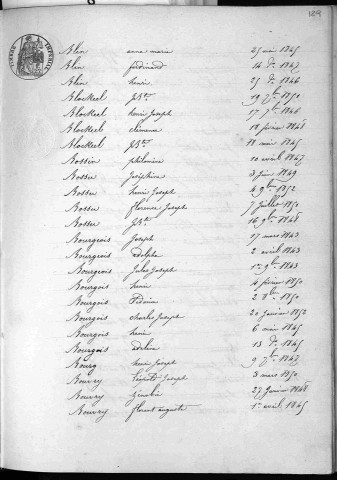 189
Blin anna marie 25 mai 1845
Blin ferdinand 14 do 1847
Blin henri 25 do 1846
Blockeel Jbte 19 7bre 1850
Blockeel henri Joseph 17 7bre 1846
Blockeel clemence 18 février 1848
Blockeel Jbte 18 mai 1845
Bossin philomène 10 avril 1847
Bossu Joséphine 3 Juin 1849
Bossu henri Joseph 4 9bre 1852
Bossu florence Joseph 7 Juillet 1850
Bossu Jbte 16 9bre 1848
Bourgeois Joseph 27 mars 1843
Bourgeois adolphe 2 avril 1843
Bourgeois Jules Joseph 1er 9bre 1843
Bourgois henri 14 février 1850
Bourgois 2 8bre 1850
Bourgois Charles Joseph 20 Janvier 1852
Bourgois henri 6 mai 1845
Bourgois adeline 13 do 1845
Bourg henri Joseph 9 7bre 1847
Bouvry Joseph 3 mars 1850
Bouvry 27 Janvier 1848
Bouvry florent auguste 1er avril 1845